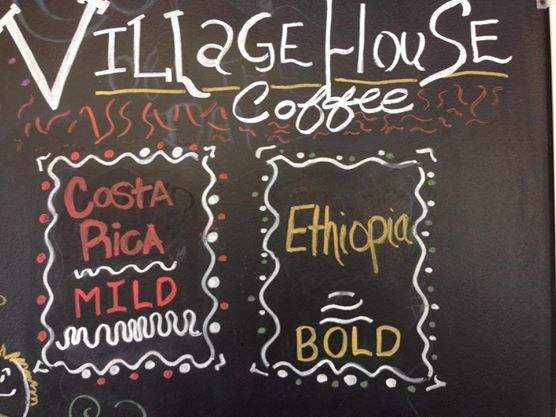 VILLaGE HouSE
Coffee
COSTA
RICA
MILD
Ethiopia
BOLD